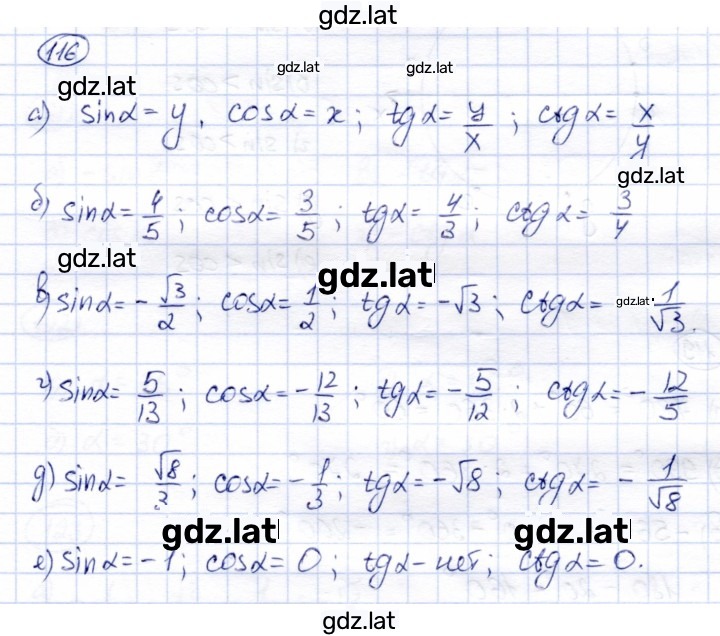 gdz.lat
116
gdz.lat gdz.lat gdz.lat
а) sinα = y, cosα = x; tgα = y/x; ctgα = x/y
gdz.lat
б) sinα = 4/5; cosα = 3/5; tgα = 4/3; ctgα = 3/4
gdz.lat gdz.lat
в) sinα = -√3/2; cosα = 1/2; tgα = -√3; ctgα = gdz.lat 1/√3.
г) sinα = 5/13; cosα = -12/13; tgα = -5/12; ctgα = -12/5
д) sinα = √8/3; cosα = -1/3; tgα = -√8; ctgα = -1/√8
gdz.lat gdz.lat
е) sinα = -1; cosα = 0; tgα - нет; ctgα = 0.
gdz.lat